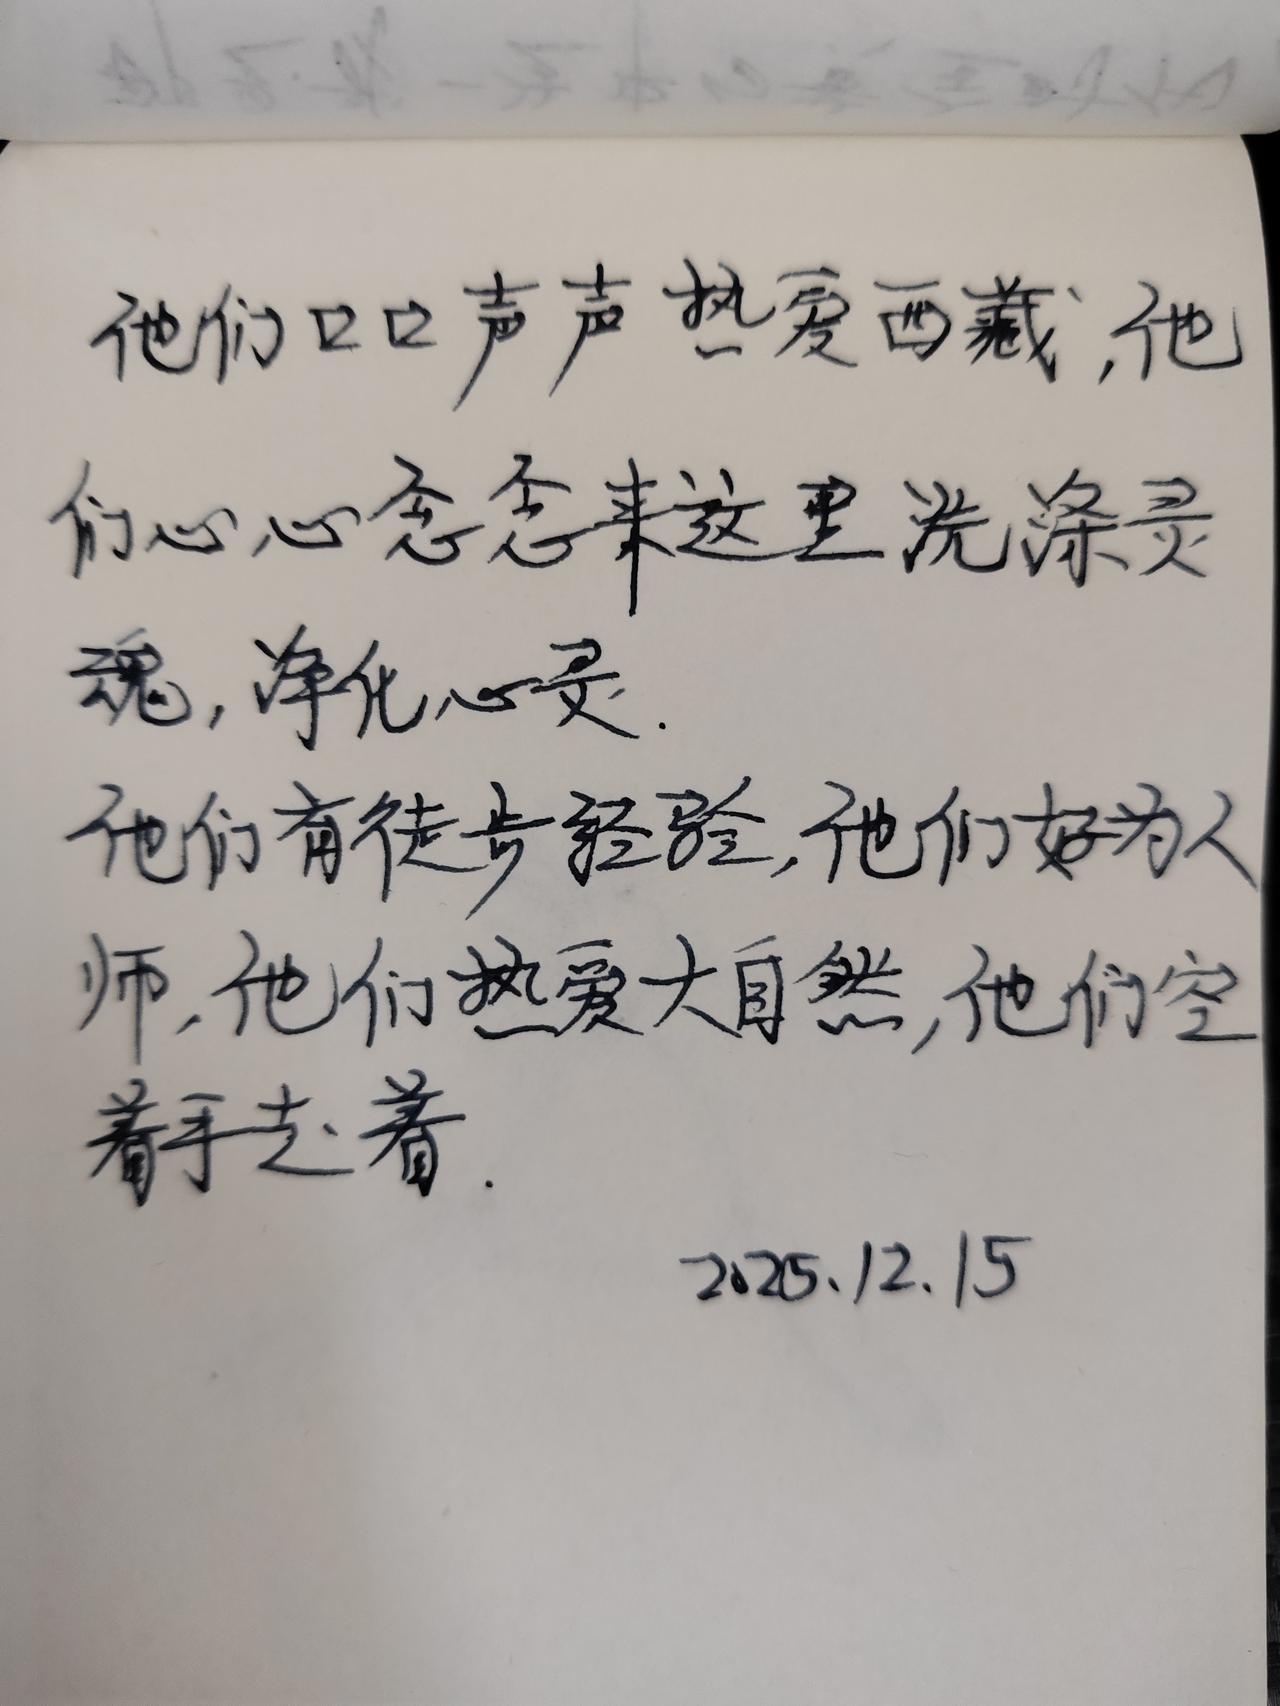 他们口口声声热爱西藏,他
们心心念念来这里洗涤灵
魂,净化心灵.
他们有徒步经验,他们好为人
师,他们热爱大自然,他们空
着手走着.
2025.12.15